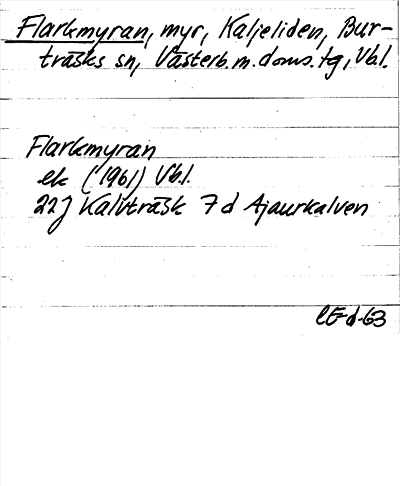 Flarkmyran, myr, Kaljeliden, Bur-
träsks sn, Västerb. m. doms. tg, Vbl.
Flarkmyran
ek (1961) Vbl.
22J Kalvträsk 7d Ajaurkalven